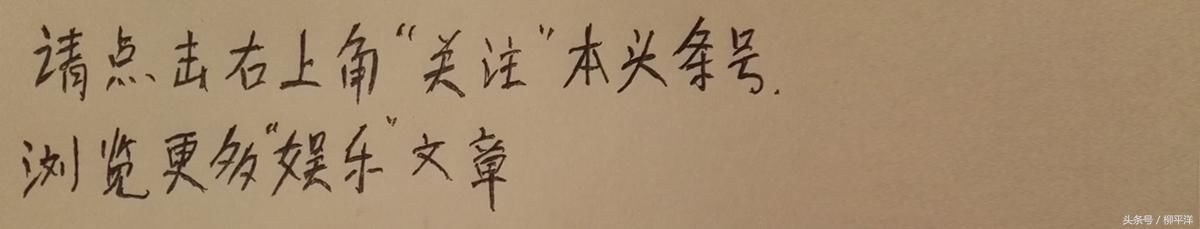 请点击右上角“关注”本头条号.
浏览更多“娱乐”文章
头条号 / 柳平洋